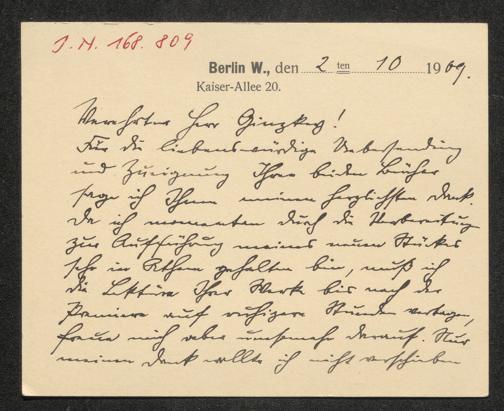 J. N. 168.809
Berlin W., den 2 ten 10 1909.
Kaiser-Allee 20.
Verehrter Herr Ginzkey!
Für die liebenswürdige Uebersendung
und Zueignung Ihrer beiden Bücher
sage ich Ihnen meinen herzlichsten Dank.
Da ich momentan durch die Vorbereitung
zur Aufführung meines neuen Stückes
sehr in Athem gehalten bin, muß ich
die Lektüre Ihrer Werke bis nach der
Premiere auf ruhigere Stunden vertagen,
freue mich aber umsomehr darauf. Nur
meinen Dank wollte ich nicht verschieben